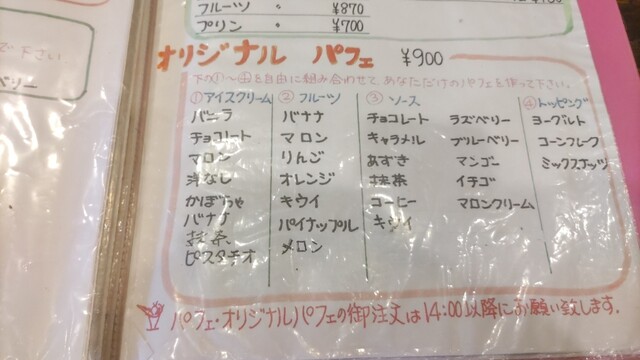 フルーツ 〃 ¥870
プリン 〃 ¥700
で下さい
ベリー
オリジナル パフェ ¥900
下の①〜④を自由に組み合わせて、あなただけのパフェを作って下さい。
①アイスクリーム ②フルーツ ③ソース ④トッピング
バニラ バナナ チョコレート ラズベリー ヨーグルト
チョコレート マロン キャラメル ブルーベリー コーンフレーク
マロン りんご あずき マンゴー ミックスナッツ
洋なし オレンジ 抹茶 イチゴ
かぼちゃ キウイ コーヒー マロンクリーム
バナナ パイナップル キウイ
抹茶 メロン
ピスタチオ
パフェ・オリジナルパフェの御注文は14:00以降にお願い致します。